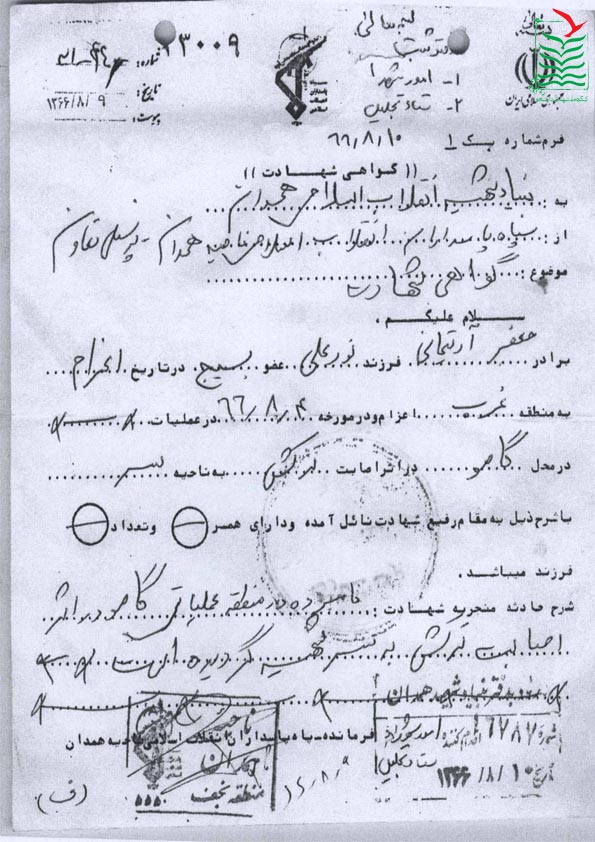 بسمه تعالی
شماره: ۱۳۰۰۹
تاریخ: ۱۳۶۶/۸/۹
پیوست:
۱- امور شهدا
۲- ستاد تجلیل
۶۶/۸/۱۰
فرم شماره یک ۱
(( گواهی شهادت ))
به: بنیاد شهید انقلاب اسلامی همدان
از: سپاه پاسداران انقلاب اسلامی ناحیه همدان - پرسنلی تعاون
موضوع: گواهی شهادت
سلام علیکم.
برادر جعفر آرتیمانی فرزند نورعلی عضو بسیج در تاریخ اعزام
به منطقه غرب اعزام و در مورخه ۶۶/۸/۴ در عملیات
در محل گامو در اثر اصابت ترکش به ناحیه سر
باشرح ذیل به مقام رفیع شهادت نائل آمده و دارای همسر و تعداد
فرزند میباشد.
شرح حادثه منجر به شهادت: نامبرده در منطقه عملیاتی گامو در اثر
اصابت ترکش به سر شهید گردیده است
فرمانده سپاه پاسداران انقلاب اسلامی ناحیه همدان
همدان
منطقه نجف
۵۵۵۰
بنیاد شهید همدان
شماره ۱۶۷۸۷
اقدام کننده امور شهدا
ستاد تجلیل
تاریخ ۱۳۶۶/۸/۱۰
(ف)